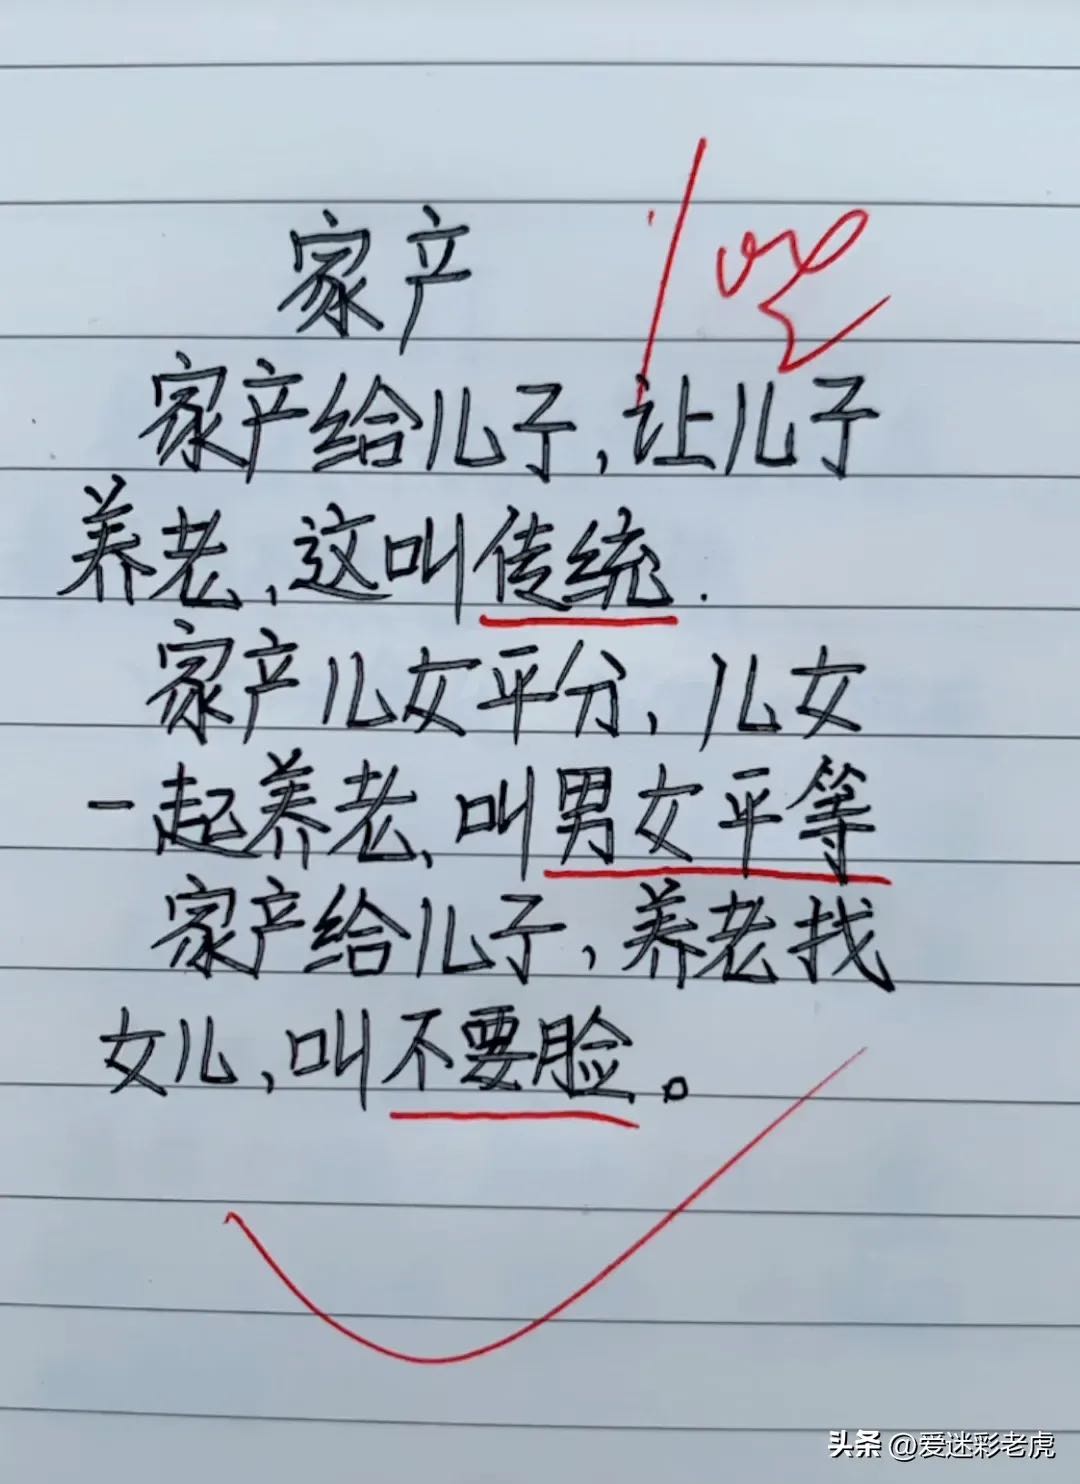 家产
家产给儿子,让儿子
养老,这叫传统.
家产儿女平分,儿女
一起养老,叫男女平等
家产给儿子,养老找
女儿,叫不要脸。
头条 @爱迷彩老虎